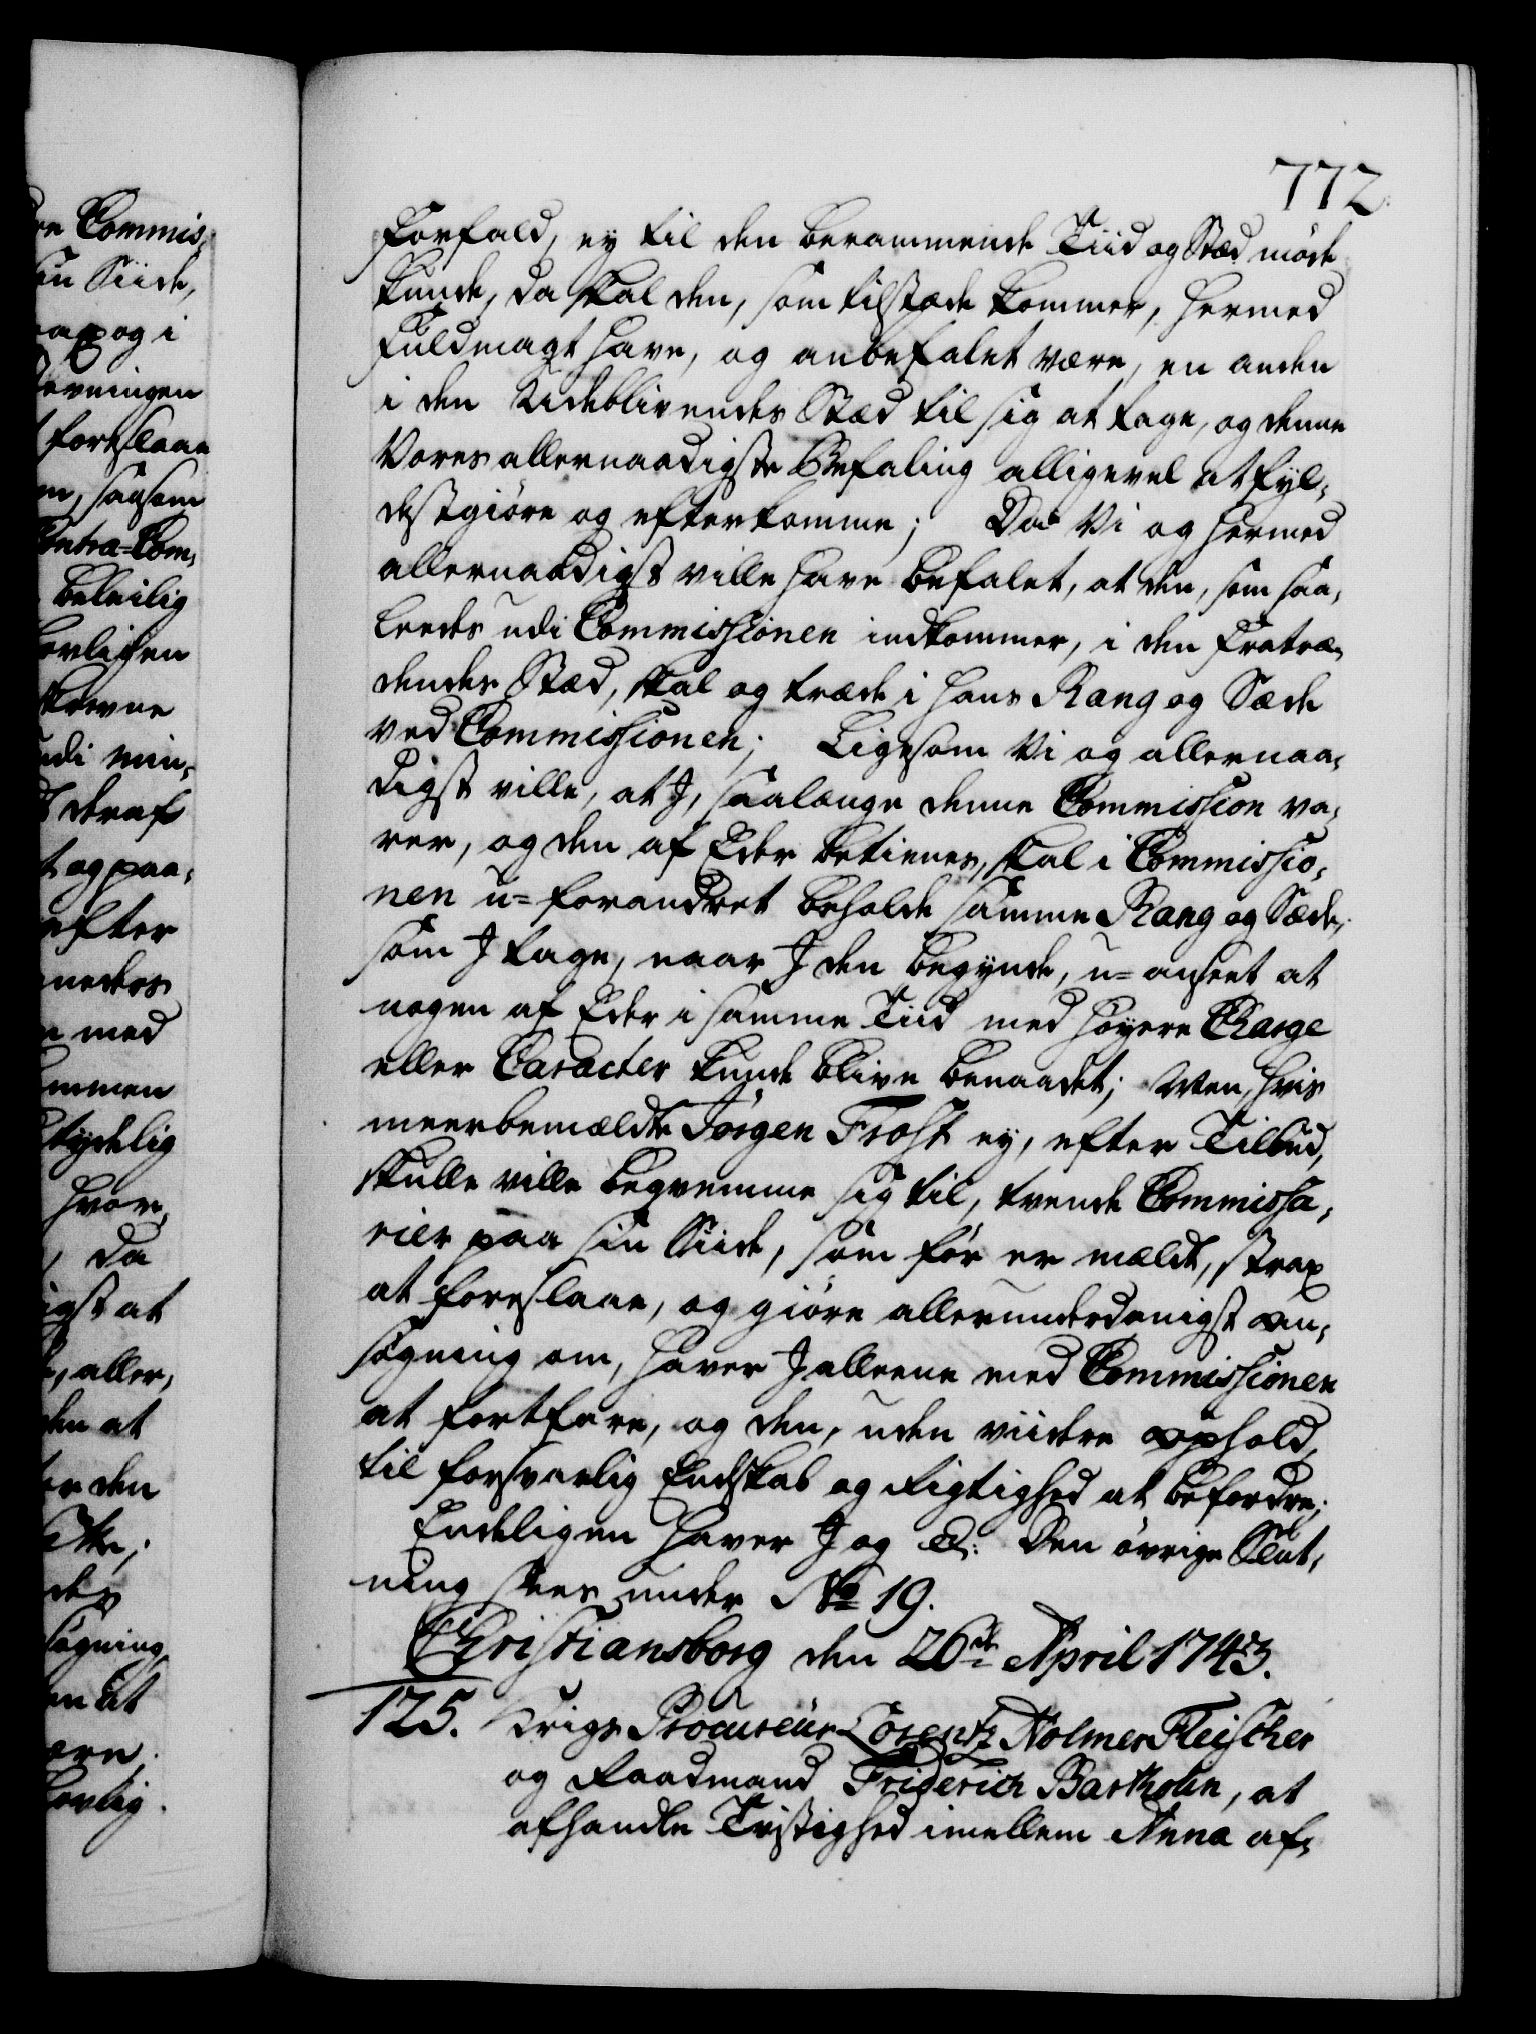 772.
Forfald, ey til den berammende Tiid og Stæd møde
kunde, da skal den, som tilstæde kommer, hermed
Fuldmagt have, og anbefalet være, en anden
i den Udeblivendes Stæd til sig at tage, og denne
Vores allernaadigste Befaling alligevel at fyl-
destgiøre og efterkomme; Da Vi og hermed
allernaadigst ville have befalet, at den, som saa-
leedes udi Commissionen indkommer, i den Fratræ-
dendes Stæd, skal og træde i hans Rang og Sæde
ved Commissionen; Ligesom Vi og allernaa-
digst ville, at I, saalænge denne Commission va-
rer, og den af Eder betienes, skal i Commissio-
nen u-forandret beholde samme Rang og Sæde,
som I tage, naar I den begynde, u-anseet at
nogen af Eder i samme Tiid med høyere Charge
eller Caracter kunde blive benaadet; Men, hvis
meerbemældte Jørgen Frost ey, efter Tilbud,
skulle ville beqvemme sig til, tvende Commissa-
rier paa sin Siide, som før er mældt, strax
at foreslaae, og giøre allerunderdanigst An-
søgning om, haver I alleene med Commissionen
at fortfare, og den, uden viidere ophold,
til forsvarlig Endskab og Rigtighed at befordre;
Endeligen haver I og &c: Den øvrige Slut-
ning sees under No 19.
Christiansborg den 26de April 1743.
125. Krigs Procureur Lorentz Holmer Fleischer
og Raadmand Friderich Bartholin, at
afhandle Tvistighed imellem Anna af-